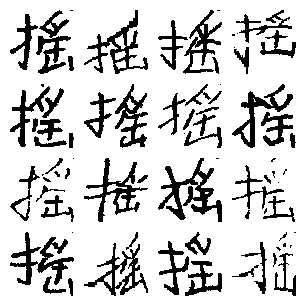 摇摇摇摇
摇摇摇摇
摇摇摇摇
摇摇摇摇